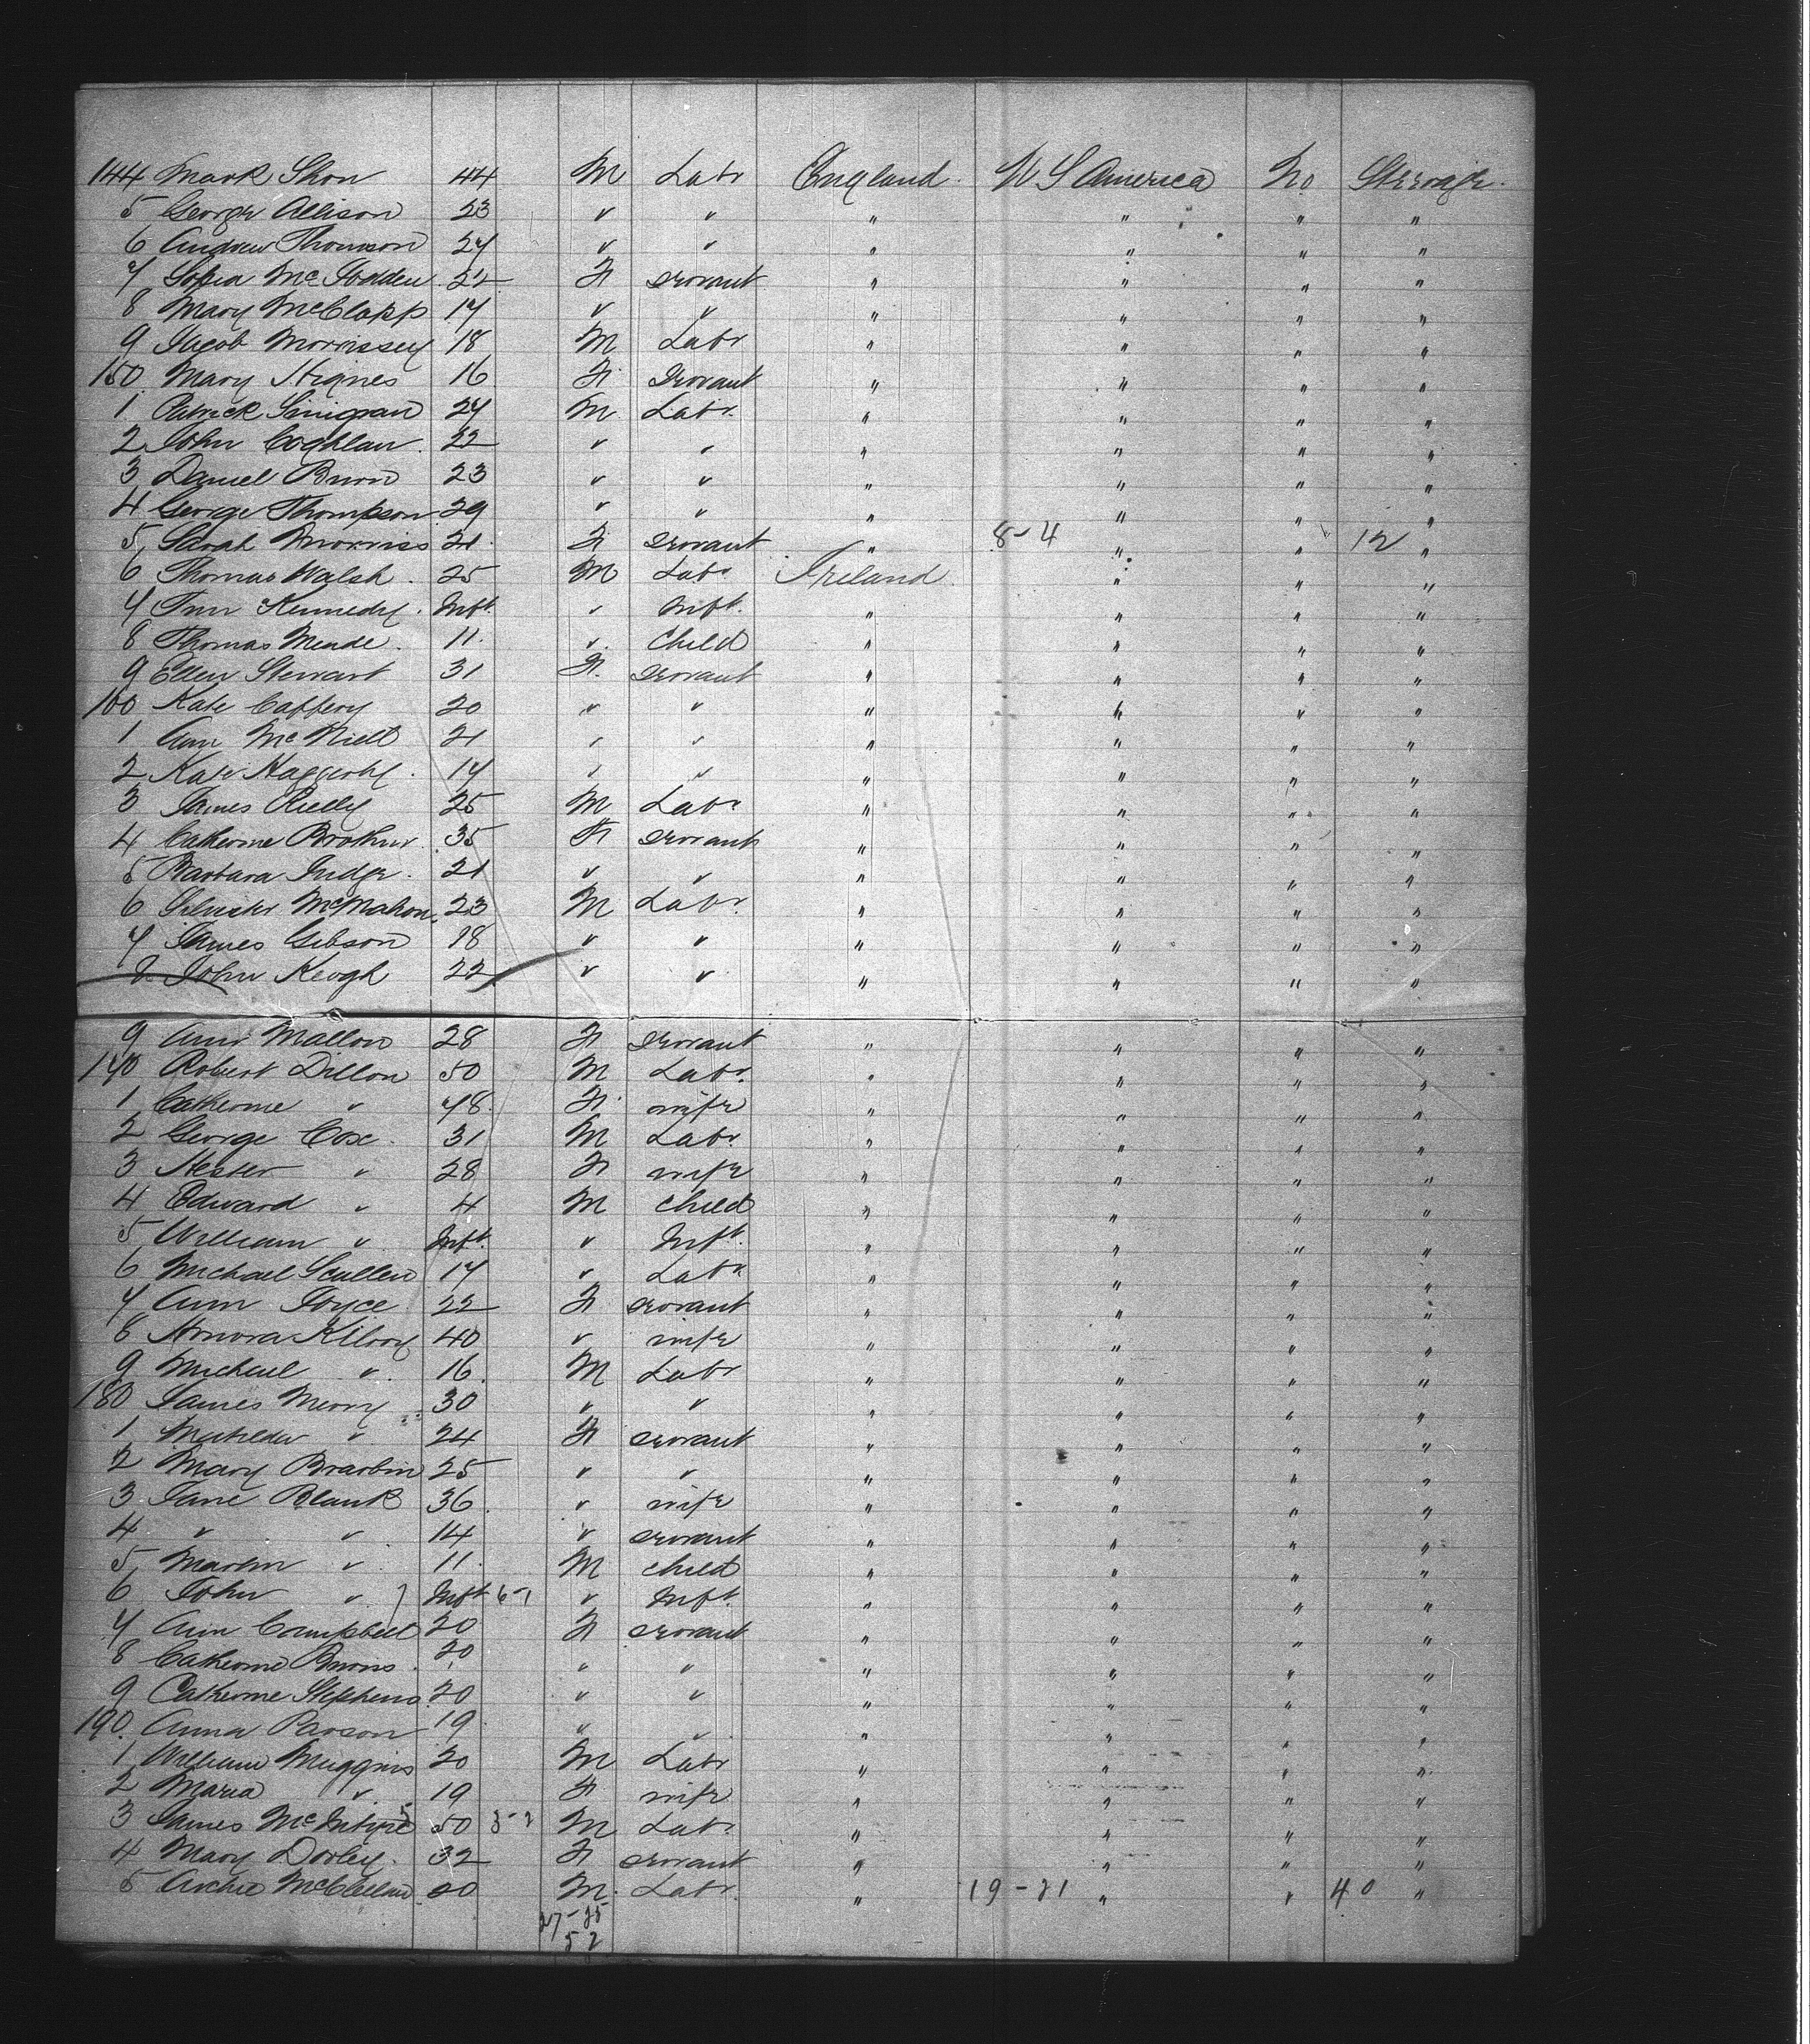 144 Mark Shon 44 M Labr England U S America No Steerage
5 George Allison 23 " " " " " "
6 Andrew Thomson 27 " " " " " "
7 Sofia Mc Fadden 22 F servant " " " "
8 Mary McClapp 17 " " " " " "
9 Jacob Morrissey 18 M Labr " " " "
150 Mary Hignes 16 F servant " " " "
1 Patrick 27 M Labr " " " "
2 John Coghlan 22 " " " " " "
3 Daniel Burn 23 " " " " " "
4 George Thompson 29 " " " " " "
5 Sarah Morriss 21 F servant " 8-4 " " 12 "
6 Thomas Walsh 25 M Labr Ireland " " "
7 Kennedy Inft " Inft " " " "
8 Thomas Meade 11 " Child " " " "
9 Ellen Stewart 31 F servant " " " "
160 Kate Caffery 20 " " " " " "
1 Ann Mc Niell 21 " " " " " "
2 Kate Haggerty 17 " " " " " "
3 James Rielly 25 M Labr " " " "
4 Catherine Brother 35 F servant " " " "
5 Barbara Judge 21 " " " " " "
6 Silvester McMahon 23 M Labr " " " "
7 James Gibson 18 " " " " " "
8 John Keogh 22 " " " " " "
9 Ann Mallon 28 F servant " " " "
170 Robert Dillon 50 M Labr " " " "
1 Catherine " 48 F wife " " " "
2 George Cox 31 M Labr " " " "
3 Hester " 28 F wife " " " "
4 Edward " 4 M child " " " "
5 William " Inft " Inft " " " "
6 Michael Scullen 17 " Labr " " " "
7 Ann Joyce 22 F servant " " " "
8 Honora Kilroy 40 " wife " " " "
9 Michael " 16 M Labr " " " "
180 James Merry 30 " " " " " "
1 Matilda " 24 F servant " " " "
2 Mary Brarbin 25 " " " " " "
3 Jane Blank 36 " wife " " " "
4 " " 14 " servant " " " "
5 Martin " 11 M child " " " "
6 John " Inft 6-1 " Inft " " " "
7 Ann Campbell 20 F servant " " " "
8 Catherine Burns 20 " " " " " "
9 Catherine Stephens 20 " " " " " "
190 Anna Parson 19 " " " " " "
1 William Muggins 20 M Labr " " " "
2 Maria " 19 F wife " " " "
3 James McIntyre 50 3-2 M Labr " " " "
4 Mary Dorley 32 F servant " " " "
5 Archie McClellan 20 M Labr " 19-21 " " 40 "
27-25
52